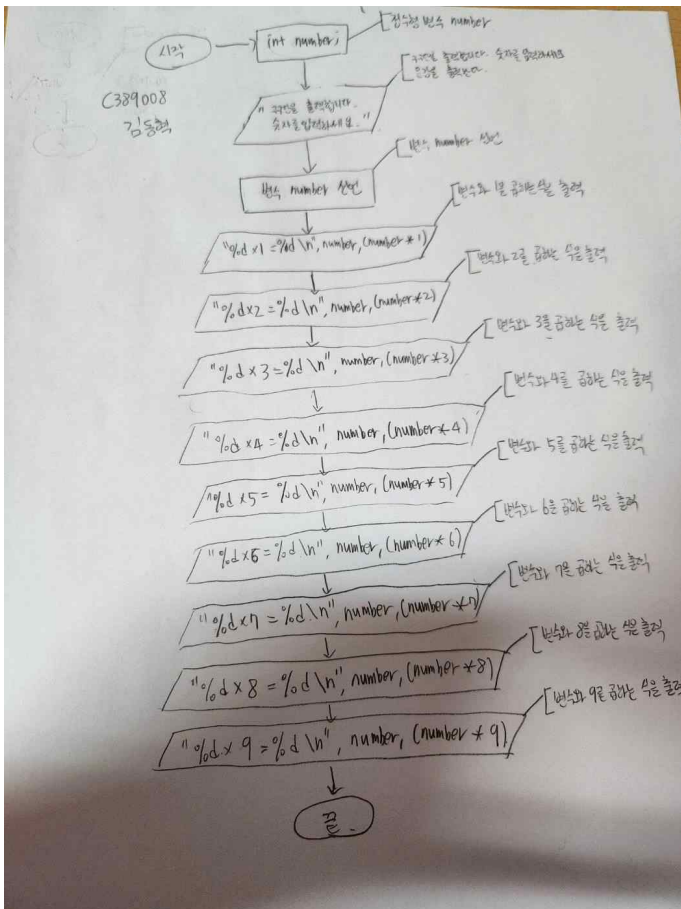 시작
int number;
정수형 변수 number
C389008
김동혁
"구구단을 출력합니다.
숫자를 입력하세요."
구구단을 출력합니다. 숫자를 입력하세요
출력한다.
변수 number 선언
변수 number 선언
"%d x1 =%d \n", number, (number * 1)
변수와 1을 곱하는 식을 출력
"%d x2 =%d \n", number, (number*2)
변수와 2를 곱하는 식을 출력
"%d x 3 =%d \n", number, (number *3)
변수와 3을 곱하는 식을 출력
"%d x4 =%d \n", number, (number * 4)
변수와 4를 곱하는 식을 출력
"%d x5 = %d \n", number, (number * 5)
변수와 5를 곱하는 식을 출력
"%d x6 =%d \n", number, (number * 6)
변수와 6을 곱하는 식을 출력
"%d x7 = %d \n", number, (number *7)
변수와 7을 곱하는 식을 출력
"%d x 8 = %d \n", number, (number *8)
변수와 8을 곱하는 식을 출력
"%d x 9 =%d \n", number, (number * 9)
변수와 9를 곱하는 식을 출력
끝.